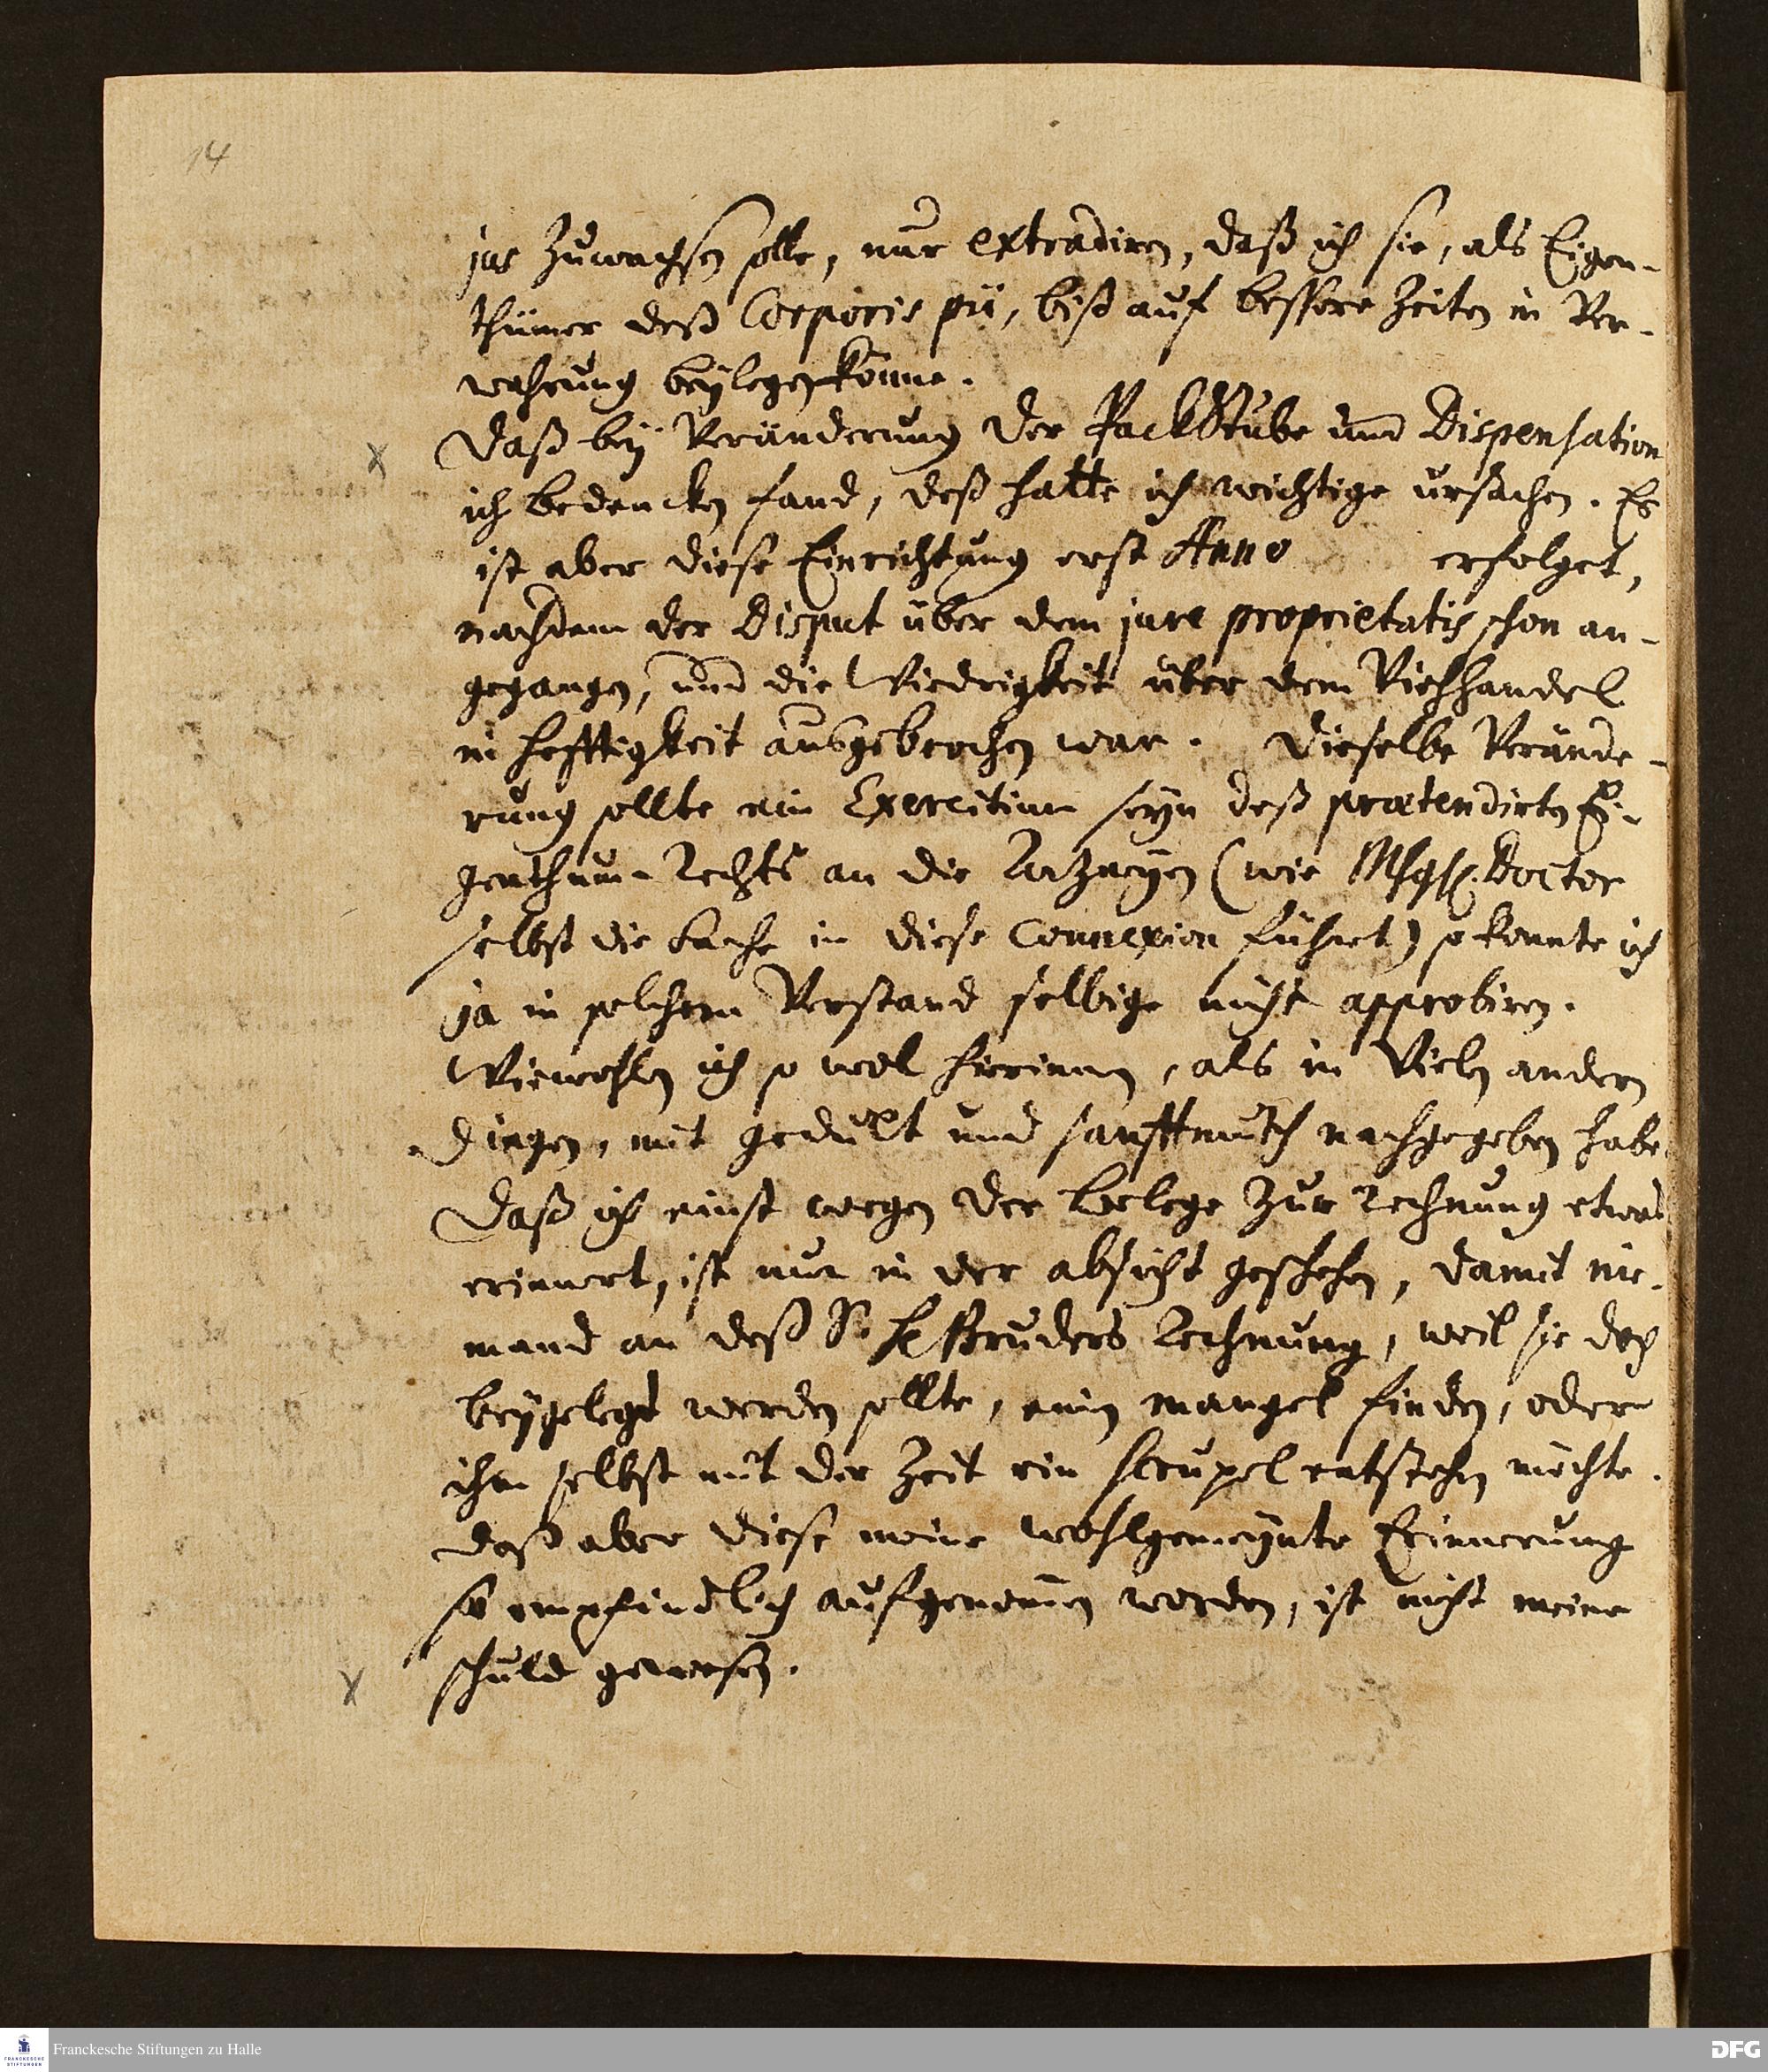 14
jus zuwachsen solle, nur extradiren, daß ich sie, als Eigen-
thümer deß Corporis pii, biß auf bessere Zeiten in Ver-
wahrung beylegen könne.
Daß bey Veränderung der PackStube und Dispensation
ich bedencken fand, deß hatte ich wichtige ursachen. Es
ist aber diese Einrichtung erst Anno erfolget,
nachdem der Disput über dem jure proprietatis schon an-
gegangen, und die Wiedrigkeit über dem Viehhandel
in hefftigkeit ausgebrochen war. Dieselbe Verände-
rung sollte ein Exercitium seyn deß praetendirten Ei-
genthum-Rechts an die Artzneyen (wie Doctor
selbst die Sache in diese Connexion führet) so konnte ich
ja in solchem Verstand selbige nicht approbiren.
Wiewohlen ich so wol hierinnen, als in Vielen andern
Dingen, mit gedult und sanfftmuth nachgegeben habe.
Daß ich einst wegen der Belege zur Rechnung etwas
erinnert, ist nur in der absicht geschehen, damit nie-
mand an deß Bruders Rechnung, weil sie doch
beygelegt werden sollte, einen mangel finden, oder
ihm selbst mit der Zeit ein scrupel entstehen möchte.
Daß aber diese meine wohlgemeynte Erinnerung
so empfindlich aufgenomen worden, ist nicht meine
schuld gewesen.
Franckesche Stiftungen zu Halle
DFG